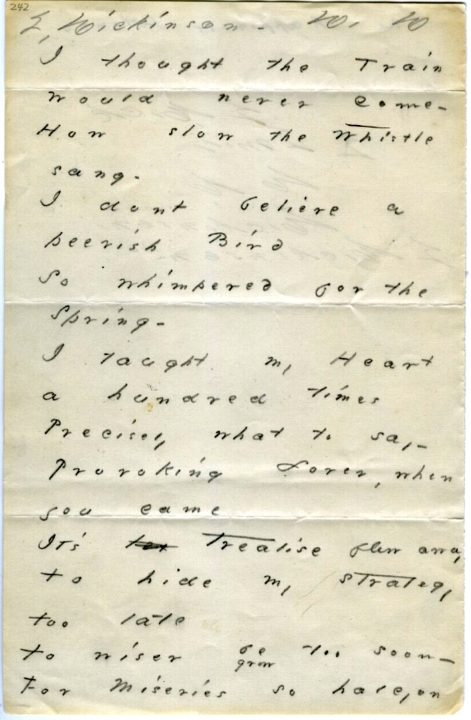 242
E, Dickinson -
I thought the Train
would never come -
How slow the Whistle
sang -
I dont believe a
peevish Bird
So whimpered for the
Spring -
I taught my Heart
a hundred times
Precisely what to say -
Provoking Lover, when
you came
It's Treatise flew away
To hide my strategy
too late
To wiser be too soon -
grow
For Miseries so halcyon